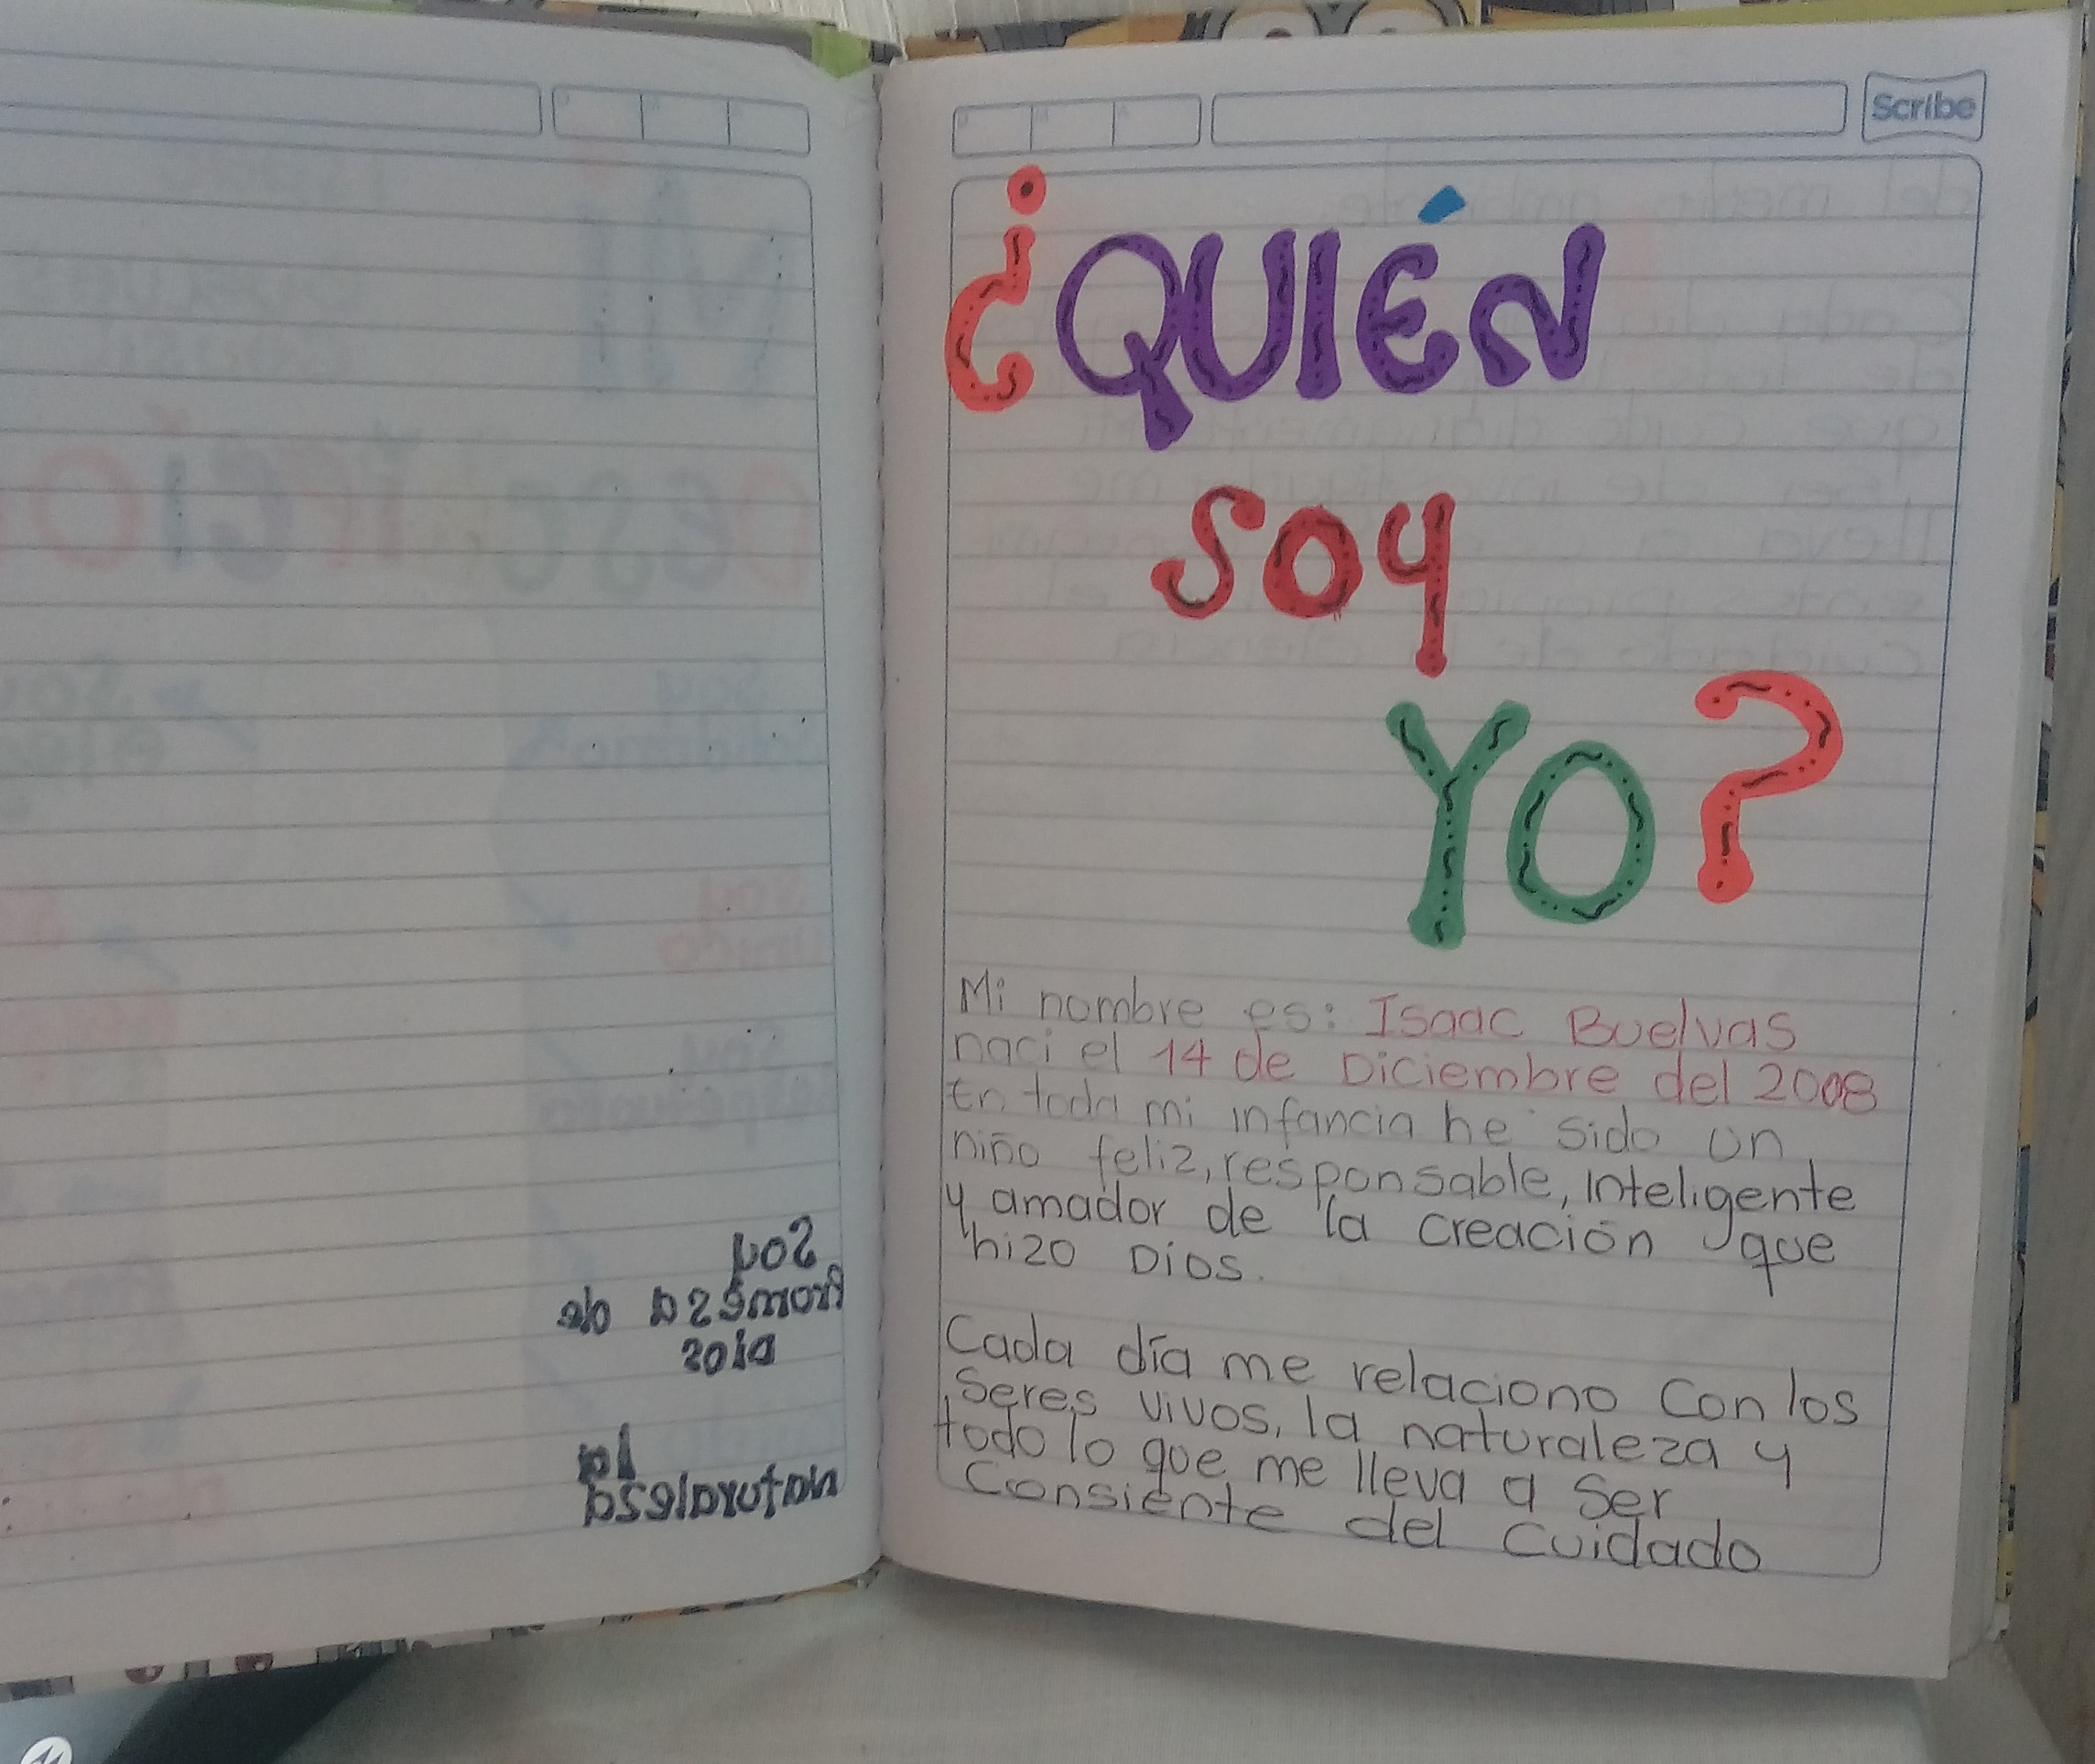 Scribe
¿QUIÉN
SOY
YO?
Mi nombre es: Isaac Buelvas
naci el 14 de Diciembre del 2008
En toda mi infancia he sido un
niño feliz, responsable, inteligente
y amador de la creación que
hizo Dios.
Cada día me relaciono con los
seres vivos, la naturaleza y
todo lo que me lleva a ser
Consiente del cuidado